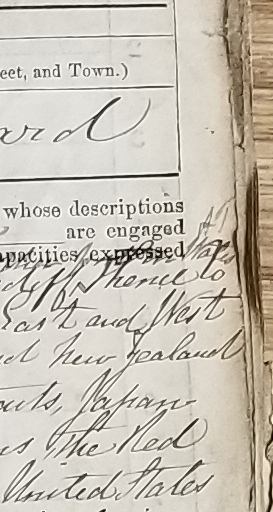 eet, and Town.)
ard
whose descriptions
are engaged
apacities expressed
Thence to
East and West
and New Zealand
Japan
The Red
United States